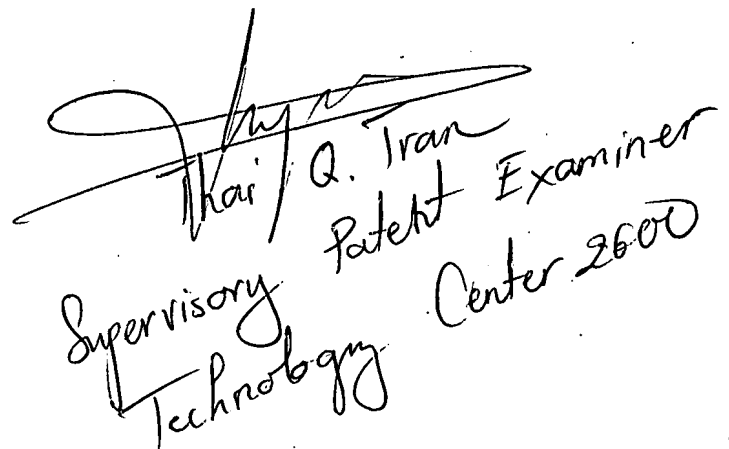 Thai Q. Tran
Supervisory Patent Examiner
Technology Center 2600